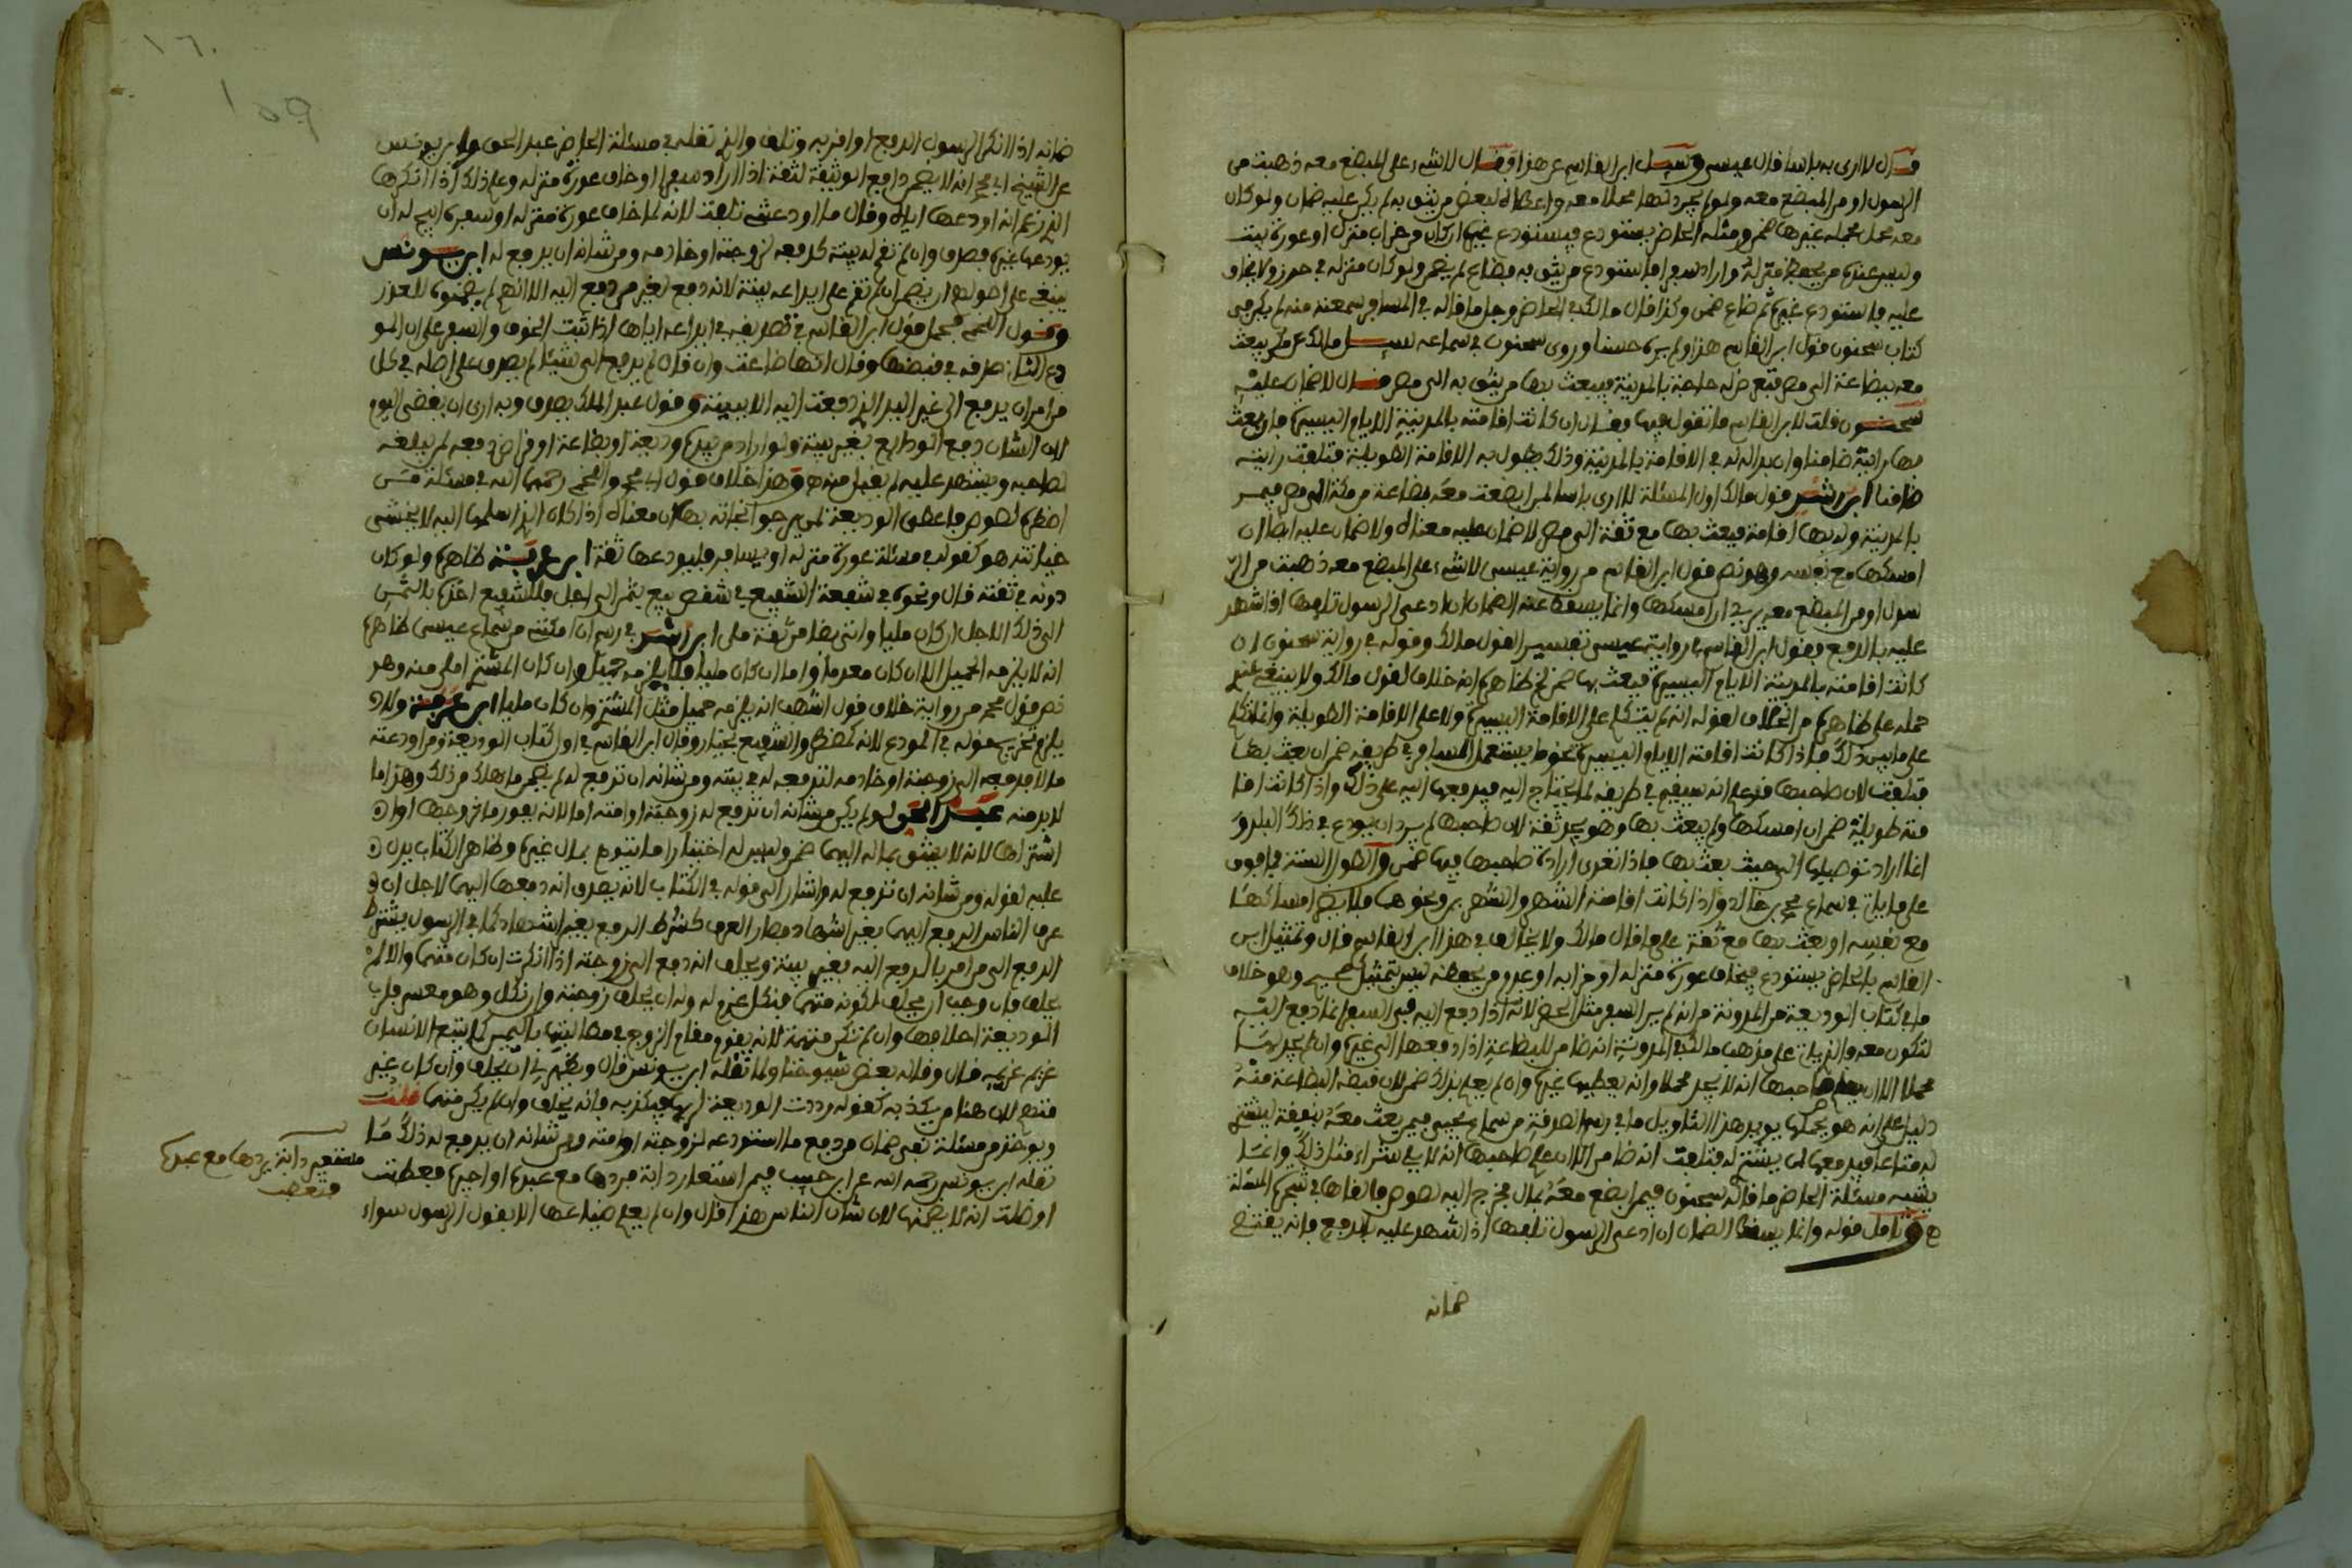 قال لا أرى به بأسا قال عيسى وسئل ابن القاسم عن هذا فقال لا شيء على المبضع معه ذهبت من
الرسول أو من المبضع معه ولو لم يجد لها محملا معه وأعطاه لبعض من يثق به لم يكن عليه ضمان ولو كان
معه محل محمله غيرها ضمن ومثله الحاضر يستودع فيستودع غيره إن كان من خراب منزل أو عورة بيت
وليس عنده من يحفظ منزله وأراد سفرا فاستودع من يثق به فضاع لم يضمن ولو كان منزله في حرز ولا يخاف
عليه فاستودع غيره ثم ضاع ضمن وكذا قال مالك في الحاضر وجل ما قاله في المسافر سمعته منه لم يكن في
كتاب سحنون قول ابن القاسم هذا ولم يره حسنا وروى سحنون في سماعه سئل مالك عمن يبعث
معه ببضاعة إلى مصر فتعرض له حاجة بالمدينة فيبعث بها من يثق به إلى مصر قال لا ضمان عليه
سحنون قلت لابن القاسم ما تقول فيها فقال إن كانت إقامته بالمدينة الأيام اليسيرة فإن بعث
بها رأيته ضامنا وإن بدا له في الإقامة بالمدينة وذلك يطول به الإقامة الطويلة فتلفت رأيته
ضامنا ابن رشد قول مالك أول المسئلة لا أرى بأسا لمن أبضعت معه بضاعة من مكة إلى مصر فيمر
بالمدينة وله بها إقامة فيبعث بها مع ثقة إلى مصر لا ضمان عليه معناه ولا ضمان عليه أيضا إن
أمسكها مع نفسه وهو نص قول ابن القاسم من رواية عيسى لا شيء على المبضع معه ذهبت من الر
سول أو من المبضع معه يريد إن أمسكها وإنما يسقط عنه الضمان إن ادعى الرسول تلفها إذا شهد
عليه بالدفع وقول ابن القاسم في رواية عيسى تفسير لقول مالك وقوله في رواية سحنون إن
كانت إقامته بالمدينة الأيام اليسيرة فبعث بها ضمن ظاهره أنه خلاف لقول مالك ولا ينبغي
حمله على ظاهره من الخلاف لقوله أنه لم يتكلم على الإقامة اليسيرة ولا على الإقامة الطويلة وإنما تكلم
على ما بين ذلك فإذا كانت إقامته الأيام اليسيرة نحو ما يستعمل المسافر في طريقه ضمن إن بعث بها
فتلفت لأن صاحبها قد علم أنه سيقيم في طريقه لما يحتاج إليه فيدفعها إليه على ذلك وإذا كانت إقا
مته طويلة ضمن إن أمسكها ولم يبعث بها وهو يجد ثقة لأن صاحبها لم يرد أن يودع في ذلك البلد و
إنما أراد توصيلها إلى حيث بعث بها فإذا تعدى إرادة صاحبها فيها ضمن والطول السنة فما فوق
على ما يأتي في سماع محمد بن خالد وإذا كانت إقامته الشهر والشهرين ونحوهما فلا يضمن أمسكها
مع نفسه أو بعث بها مع ثقة على ما قال مالك ولا يخالف في هذا ابن القاسم قال وتمثيل ابن
القاسم بالحاضر يستودع فيخاف عورة منزله أو خرابه أو عدو من يحفظه ليس بتمثيل صحيح وهو خلاف
ما في كتاب الوديعة من المدونة من أنه لم ير السفر مثل الحضر لأنه إذا دفع إليه في السفر إنما دفع إليه
لتكون معه والذي يأتي على مذهب مالك في المدونة أنه ضامن للبضاعة إذا دفعها إلى غيره وإن لم يجد لها
محملا إلا أن يعلم صاحبها أنه لا يجد محملا وأنه يعطيها غيره وإن لم يعلم بذلك ضمن لأن قبضه البضاعة منه
دليل على أنه هو يحملها يؤيد هذا التأويل ما في رسم الصرف من سماع يحيى فيمن بعث معه بنفقة ليشتري
له متاعا فيدفعها لمن يشتري له فتلفت أنه ضامن إلا أن علم صاحبها أنه لا يلي شراء مثل ذلك وإنما
يشبه مسئلة الحاضر ما قاله سحنون فيمن أبضع معه بمال فخرج إليه لصوص فألقاها في شجرة المسئلة
هـ وتأمل قوله وإنما يسقط الضمان إن ادعى الرسول تلفها إذا شهد عليه بالدفع فإنه يقتضي
ضمانه
١٦٠
١٥٩
ضمانه إذا أنكر الرسول الدفع أو أقر به وتلف والذي نقله في مسئلة الحاضر عبد الحق وابن يونس
عن الشيخ أبي محمد أنه لا يضمن دافع الوديعة لثقة إذا أراد سفرا أو خاف عورة منزله وعلم ذلك إذا أنكرها
الذي زعم أنه أودعها إياه وقال ما أودعني تلفت لأنه لما خاف عورة منزله أو سفره أبيح له أن
يودعها غيره فصدق وإن لم تقم له بينة كدفعه لزوجته أو خادمه ومن شأنه أن يدفع له ابن يونس
ينبغي على أصولهم أن يضمن إن لم تقم على إيداعه بينة لأنه دفع لغير من دفع إليه إلا أنهم لم يضمنوه للعذر
وقول اللخمي محمل قول ابن القاسم في تصديقه في إيداعه إياها إذا ثبت الخوف والسفر على أن المو
دع الثاني صدقه في قبضها وقال إنها ضاعت وإن قال لم يدفع إلي شيئا لم يصدق على أصله في كل
من أمر أن يدفع إلى غير اليد الذي دفعت إليه إلا ببينة وقول عبد الملك يصدق وبه أرى أن يقضى اليوم
لأن الشأن دفع الودائع بغير بينة ولو أراد من بيده وديعة أو بضاعة أو قراض دفعه لمن يبلغه
لصاحبه ويشهد عليه لم يقبل منه هـ وهذا خلاف قول أبي محمد واللخمي رحمهما الله في مسئلة من
اضطره لصوص فأعطى الوديعة لمن يرجو نجاته بها إن معناه إذا كان الذي أسلمها إليه لا يخشى
خيانته هو كقوله في مسئلة عورة منزله أو يسافر فليودعها ثقة ابن عرفة ظاهره ولو كان
دونه في ثقته قال ونحوه في شفعة الشفيع في شقص بيع بثمن إلى أجل فللشفيع أخذه بالثمن
إلى ذلك الأجل إن كان مليا وأتى بضامن ثقة ملي ابن رشد في رسم إن أمكنتني من سماع عيسى ظاهره
أنه لا يلزمه الحميل إلا إن كان معدما وأما إن كان مليا فلا يلزمه حميل وإن كان المشتري أملى منه وهو
نص قول محمد من رواية خلاف قول أشهب أنه يلزمه حميل مثل المشتري وإن كان مليا ابن عرفة ولا
يلزم تخريج قوله في المودع لأنه كمضطر والشفيع مختار وقال ابن القاسم في أول كتاب الوديعة ومن أودعته
مالا فدفعه إلى زوجته أو خادمه لترفعه له في بيته ومن شأنه أن ترفع له لم يضمن ما هلك من ذلك وهذا ما
لا بد منه عبد الحق لو لم يكن من شأنه أن ترفع له زوجته أو أمته إما لأنه بفور ما تزوجها أو
اشتراها لأنه لا يثق بماله إليهما ضمن وليس له اختبارهما بمال غيره وظاهر الكتاب يدل
عليه لقوله ومن شأنه أن ترفع له وأشار إلى قوله في الكتاب لأنه يصدق أنه دفعها إليهما لأجل أن
عرف الناس الدفع إليهما بغير إشهاد فصار العرف كشرط الدفع بغير إشهاد كما في الرسول يشترط
الدفع إلى من أمر بالدفع إليه بغير بينة ويحلف أنه دفع إلى زوجته إذا أنكرت إن كان متهما وإلا لم
يحلف فإن وجب أن يحلف لكونه متهما فنكل غرم له وله أن يحلف زوجته وإن نكل وهو معسر فلرب
الوديعة إحلافها وإن لم تكن متهمة لأنه يقوم مقام الزوج في مطالبتها باليمين كما يتبع الإنسان
غريم غريمه قال وقاله بعض شيوخنا ولما نقله ابن يونس قال ويظهر لي أن يحلف وإن كان غير
متهم لأن هنا من يكذبه كقوله رددت الوديعة لربها فيكذبه فإنه يحلف وإن لم يكن متهما قلت
ويؤخذ من مسئلة نفي ضمان من دفع ما استودعه لزوجته أو أمته ومن شأنه أن يدفع له ذلك ما
نقله ابن يونس رحمه الله عن ابن حبيب فيمن استعار دابة فردها مع عبده أو أجيره فعطبت
أو ضلت أنه لا يضمنها لأن شأن الناس هذا قال وإن لم يعلم ضياعها إلا بقول الرسول سواء
مستعير دابة يردها مع عبده
فتعطب